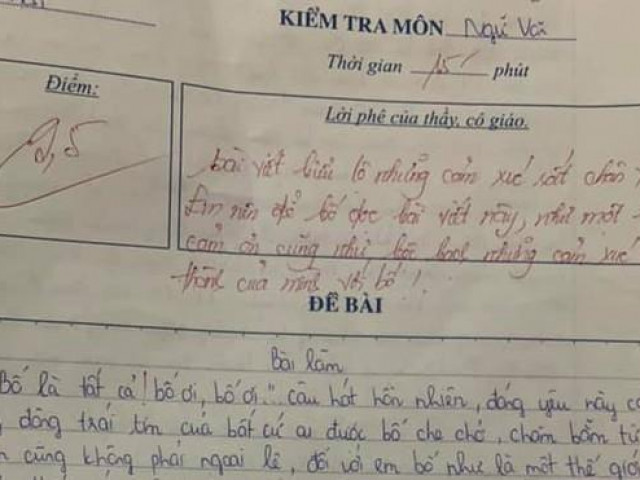 KIỂM TRA MÔN Ngữ Văn
Thời gian 15' phút
Điểm:
9,5
Lời phê của thầy, cô giáo.
bài viết biểu lộ những cảm xúc rất chân
Em nên để bố đọc bài viết này, như một
cảm ơn cũng như bộc bạch những cảm xúc
thành của mình với bố!
ĐỀ BÀI
Bài làm
Bố là tất cả! bố ơi, bố ơi..." câu hát hồn nhiên, đáng yêu này
động trái tim của bất cứ ai được bố che chở, chăm bẵm từ
cũng không phải ngoại lệ, đối với em bố như là một thế giới